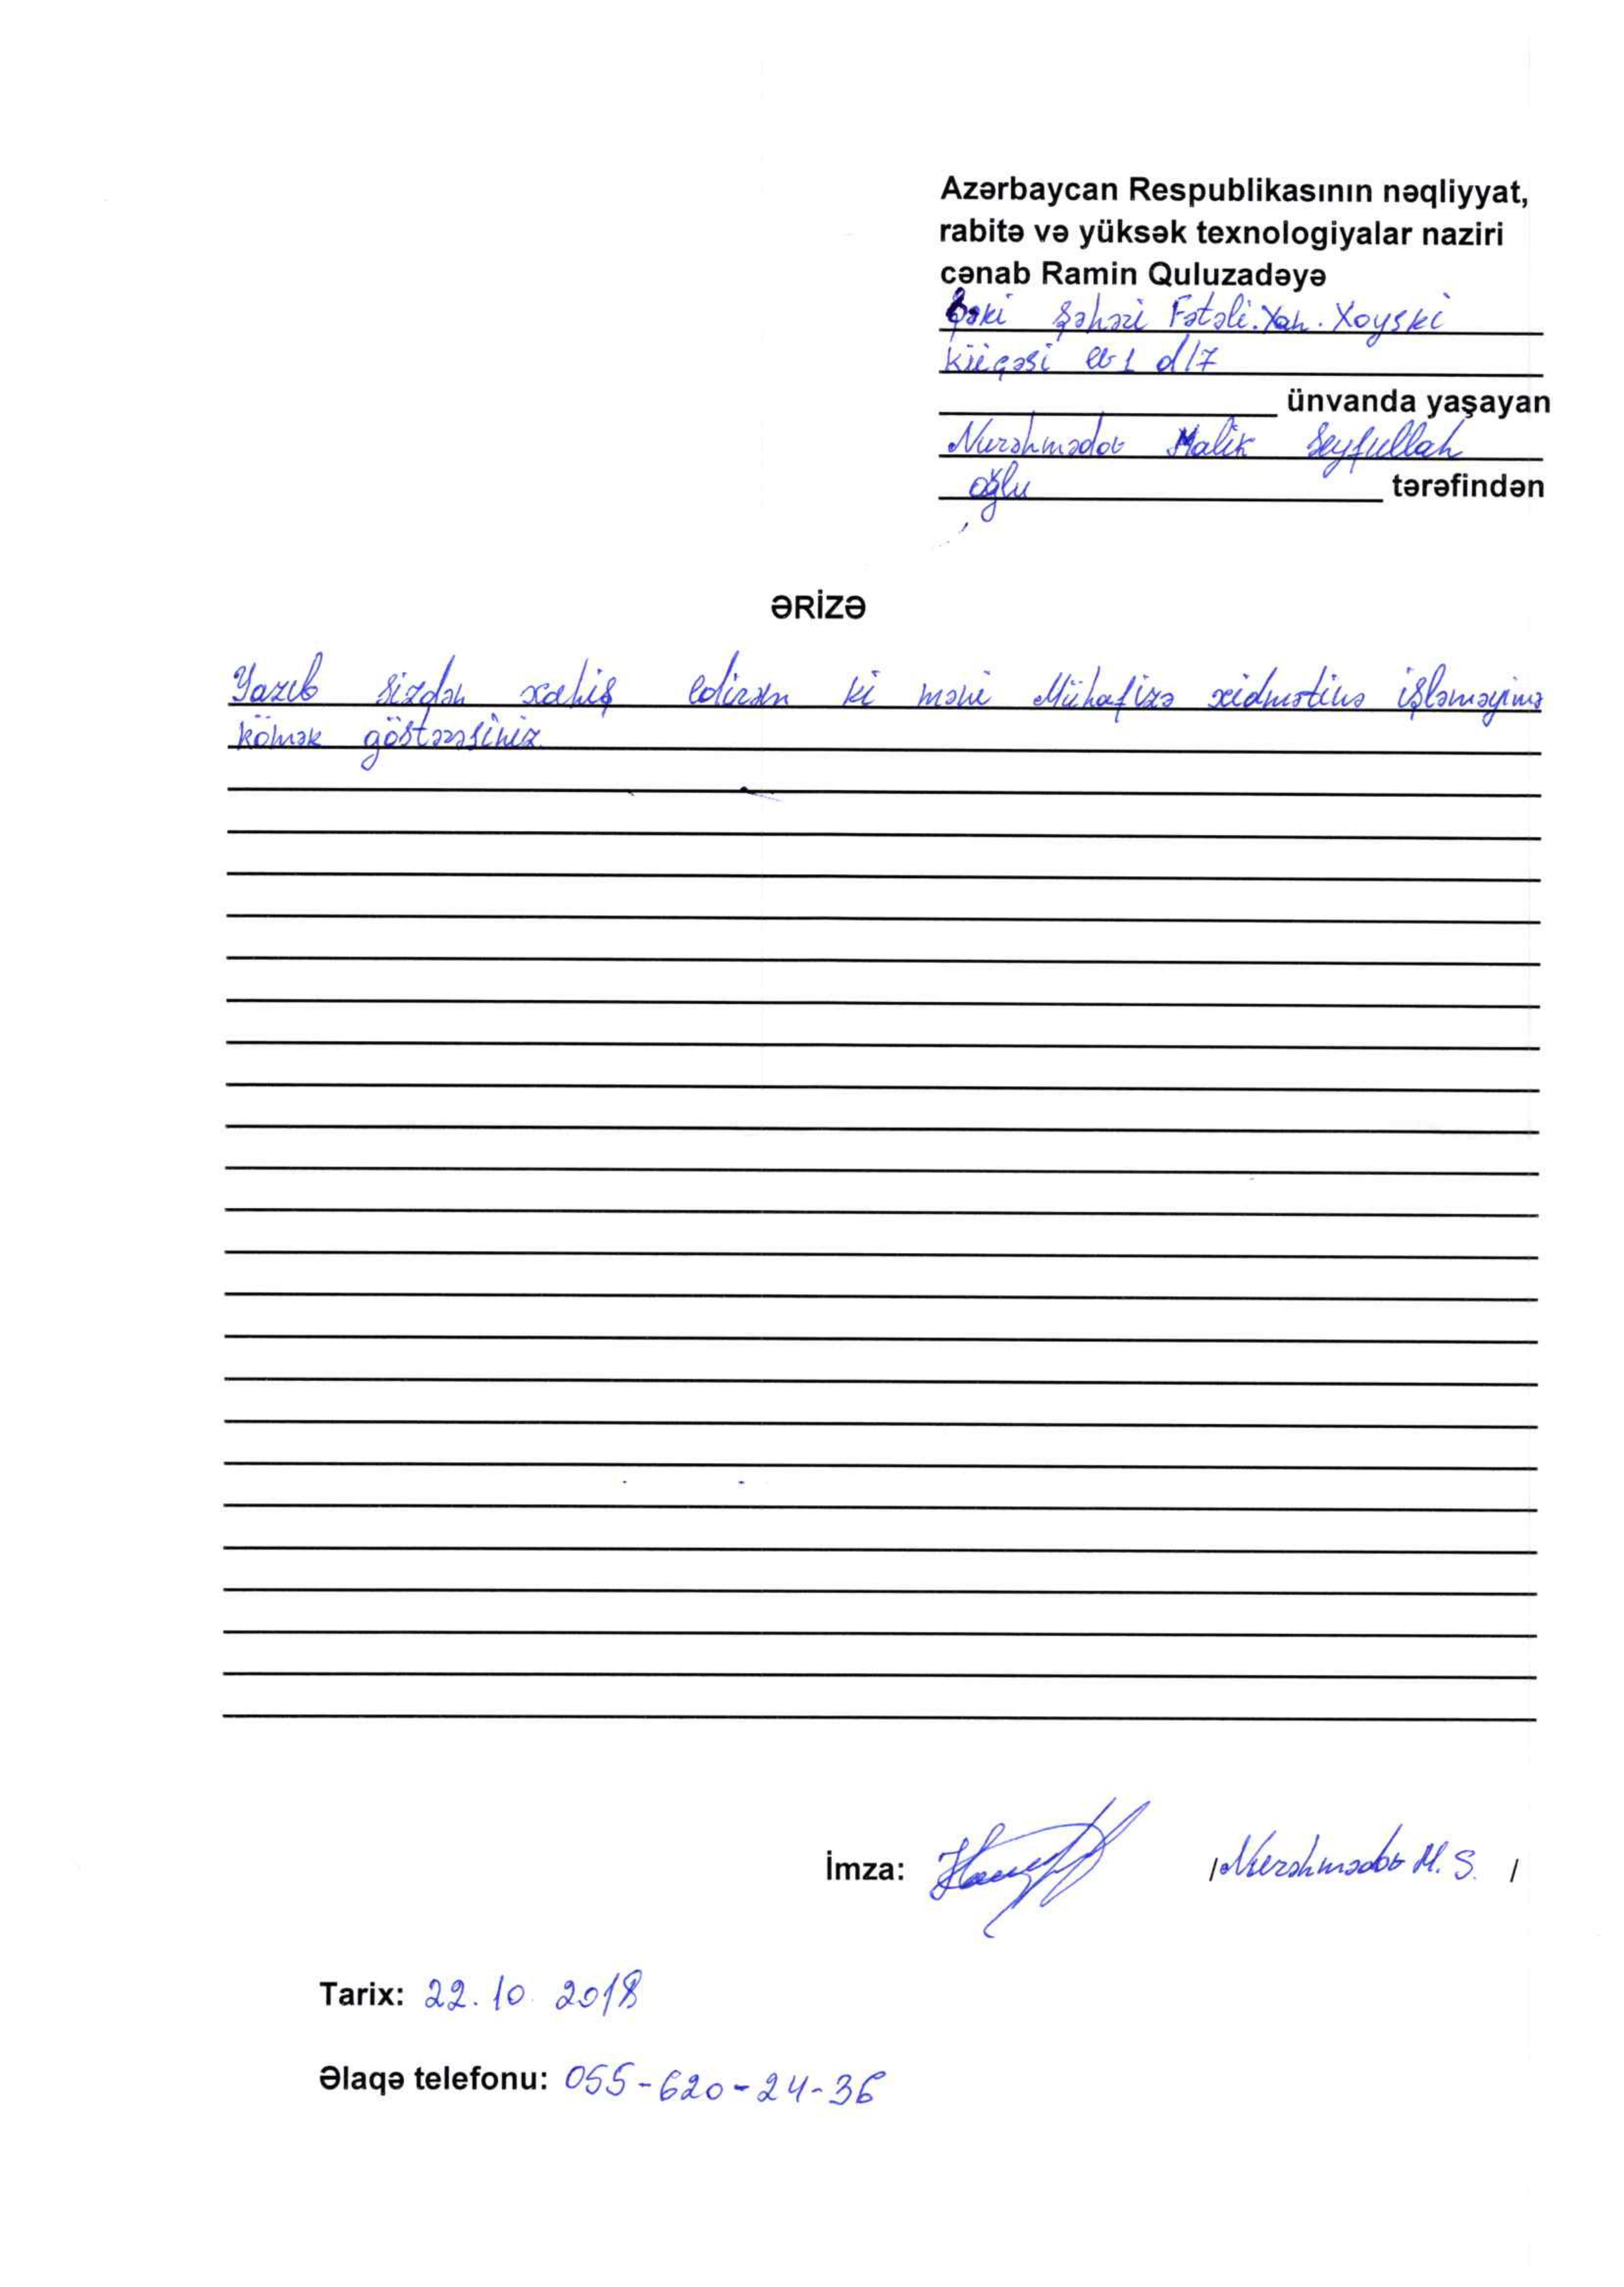 Azərbaycan Respublikasının nəqliyyat,
rabitə və yüksək texnologiyalar naziri
cənab Ramin Quluzadəyə
Şəki şəhəri Fətəli.Xan.Xoyski
küçəsi ev 1 d/7
ünvanda yaşayan
Nurəhmədov Malik Seyfullah
oğlu tərəfindən
ƏRİZƏ
Yazıb sizdən xahiş edirəm ki məni Mühafizə xidmətinə işləməyimə
kömək göstərəsiniz
İmza: /Nurəhmədov M. S. /
Tarix: 22.10.2018
Əlaqə telefonu: 055-620-24-36